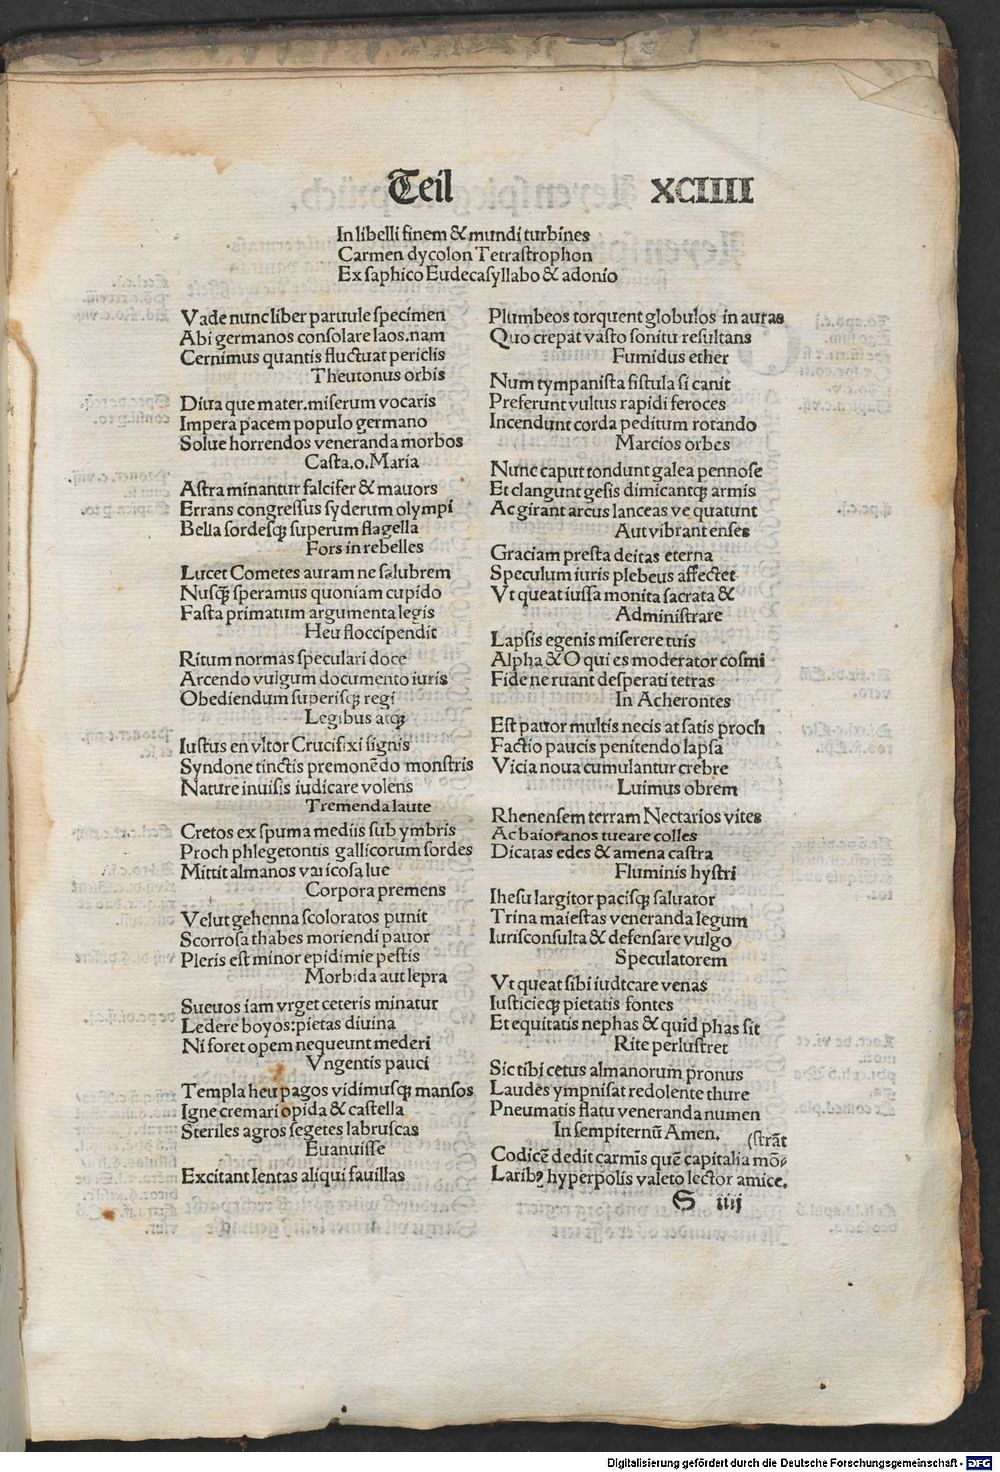 Teil XCIIII
In libelli finem & mundi turbines
Carmen dycolon Tetrastrophon
Ex saphico Eudecasyllabo & adonio
Vade nunc liber paruule specimen
Abi germanos consolare laos.nam
Cernimus quantis fluctuat periclis
Theutonus orbis
Diua que mater.miserum vocaris
Impera pacem populo germano
Solue horrendos veneranda morbos
Casta.o.Maria
Astra minantur falcifer & mauors
Errans congressus syderum olympi
Bella sordesqꝫ superum flagella
Fors in rebelles
Lucet Cometes auram ne salubrem
Nusqꝫ speramus quoniam cupido
Fasta primatum argumenta legis
Heu floccipendit
Ritum normas speculari doce
Arcendo vulgum documento iuris
Obediendum superisqꝫ regi
Legibus atqꝫ
Iustus en vltor Crucifixi signis
Syndone tinctis premonēdo monstris
Nature inuisis iudicare volens
Tremenda laute
Cretos ex spuma mediis sub ymbris
Proch phlegetontis gallicorum sordes
Mittit almanos varicosa lue
Corpora premens
Velut gehenna scoloratos punit
Scorrosa thabes moriendi pauor
Pleris est minor epidimie pestis
Morbida aut lepra
Sueuos iam vrget ceteris minatur
Ledere boyos:pietas diuina
Ni foret opem nequeunt mederi
Vngentis pauci
Templa heu pagos vidimusqꝫ mansos
Igne cremari opida & castella
Steriles agros segetes labruscas
Euanuisse
Excitant lentas aliqui fauillas
Plumbeos torquent globulos in auras
Quo crepat vasto sonitu resultans
Fumidus ether
Num tympanista fistula si canit
Preferunt vultus rapidi feroces
Incendunt corda peditum rotando
Marcios orbes
Nunc caput tondunt galea pennose
Et clangunt gesis dimicantqꝫ armis
Ac girant arcus lanceas ve quatunt
Aut vibrant enses
Graciam presta deitas eterna
Speculum iuris plebeus affectet
Vt queat iussa monita sacrata &
Administrare
Lapsis egenis miserere tuis
Alpha & O qui es moderator cosmi
Fide ne ruant desperati tetras
In Acherontes
Est pauor multis necis at satis proch
Factio paucis penitendo lapsa
Vicia noua cumulantur crebre
Luimus obrem
Rhenensem terram Nectarios vites
Ac baioranos tueare colles
Dicatas edes & amena castra
Fluminis hystri
Ihesu largitor pacisqꝫ saluator
Trina maiestas veneranda legum
Iurisconsulta & defensare vulgo
Speculatorem
Vt queat sibi iudtcare venas
Iusticieqꝫ pietatis fontes
Et equitatis nephas & quid phas sit
Rite perlustret
Sic tibi cetus almanorum pronus
Laudes ympnisat redolente thure
Pneumatis flatu veneranda numen
In sempiternū Amen. (strāt
Codicē dedit carmīs quē capitalia mō⸗
Laribꝰ hyperpolis valeto lector amice.
S iiij
Digitalisierung gefördert durch die Deutsche Forschungsgemeinschaft - DFG